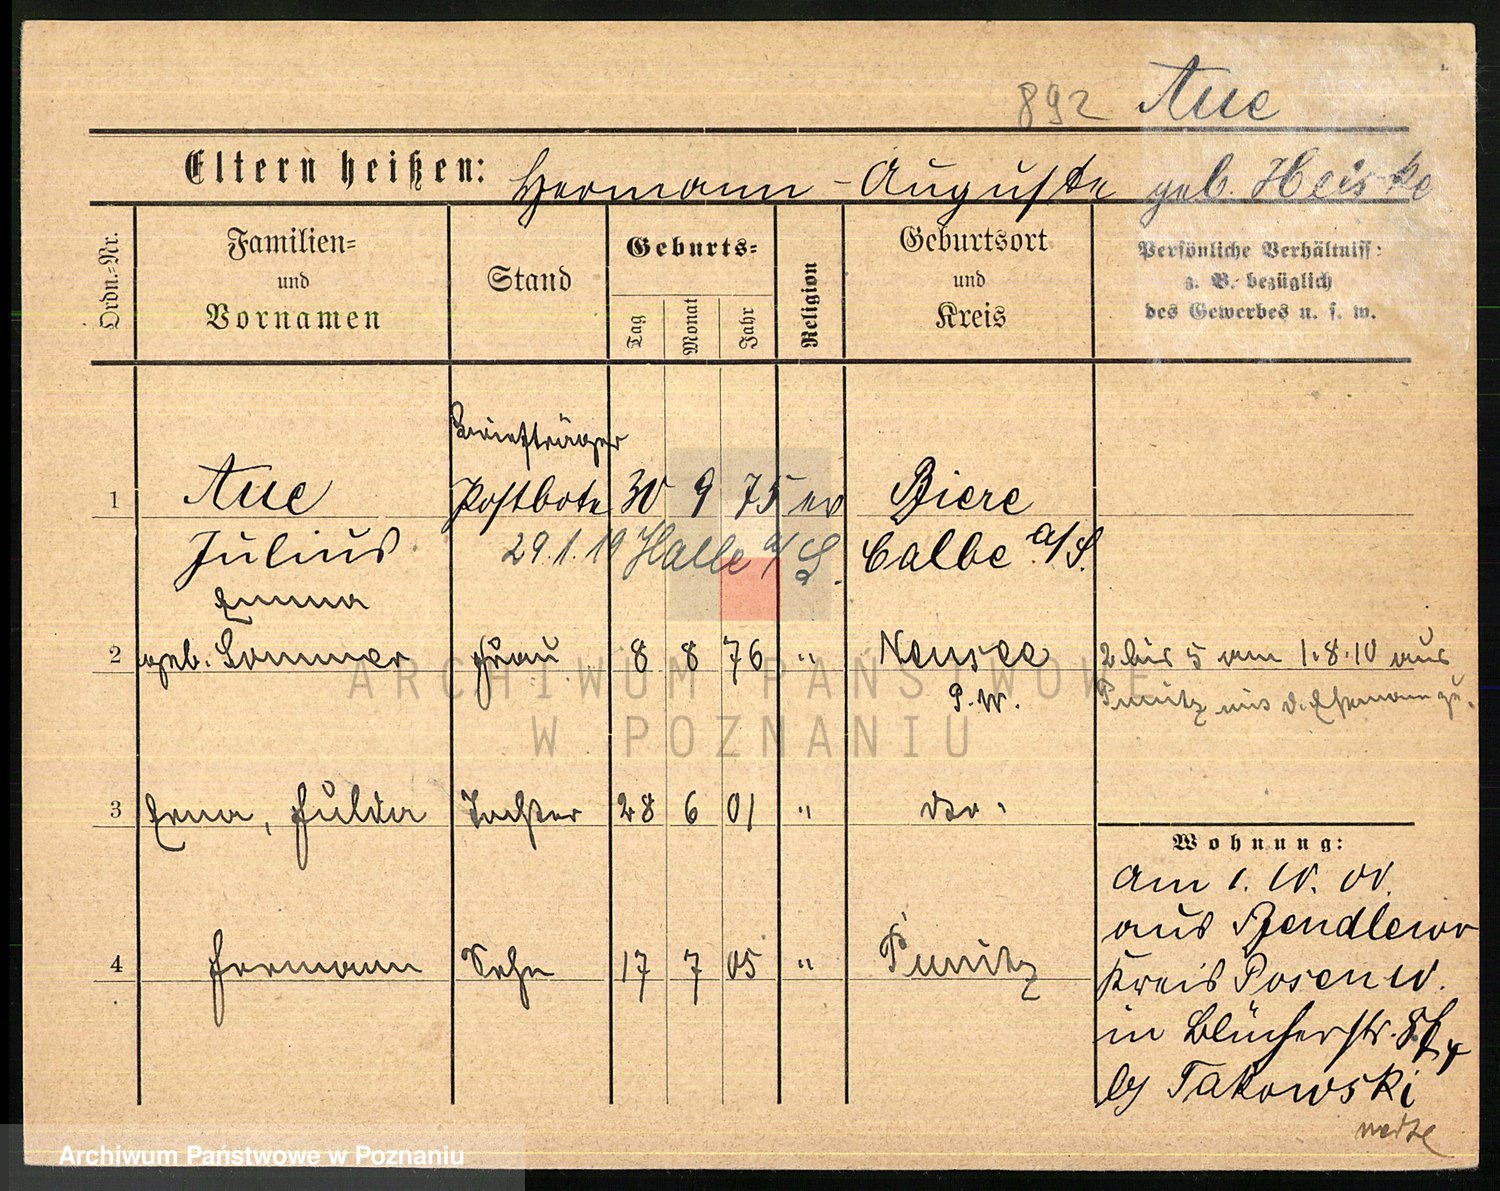 892 Aue
Eltern heißen: Hermann - Auguste geb. Heiske
Ordn.-Nr.
Familien-
und
Vornamen
Stand
Geburts-
Tag
Monat
Jahr
Religion
Geburtsort
und
Kreis
Persönliche Verhältniss:
z. B. bezüglich
des Gewerbes u. s. w.
Briefträger
1 Aue Postbote 30 9 75 ev Biere
Julius 29.1.19 Halle a/S. Calbe a/S.
Emma
2 geb. Sommer Frau 8 8 76 " Nensee 2 bis 5 am 1.8.10 aus
P.W. Punitz mis d. Ehemann zu.
3 Erna, Hulda Tochter 28 6 01 " do.
4 Hermann Sohn 17 7 05 " Punitz
Wohnung:
am 1. 10. 00.
aus Bendlewo
Kreis Posen W.
in Blücherstr.
by Takowski
ARCHIWUM PAŃSTWOWE
W POZNANIU
Archiwum Państwowe w Poznaniu